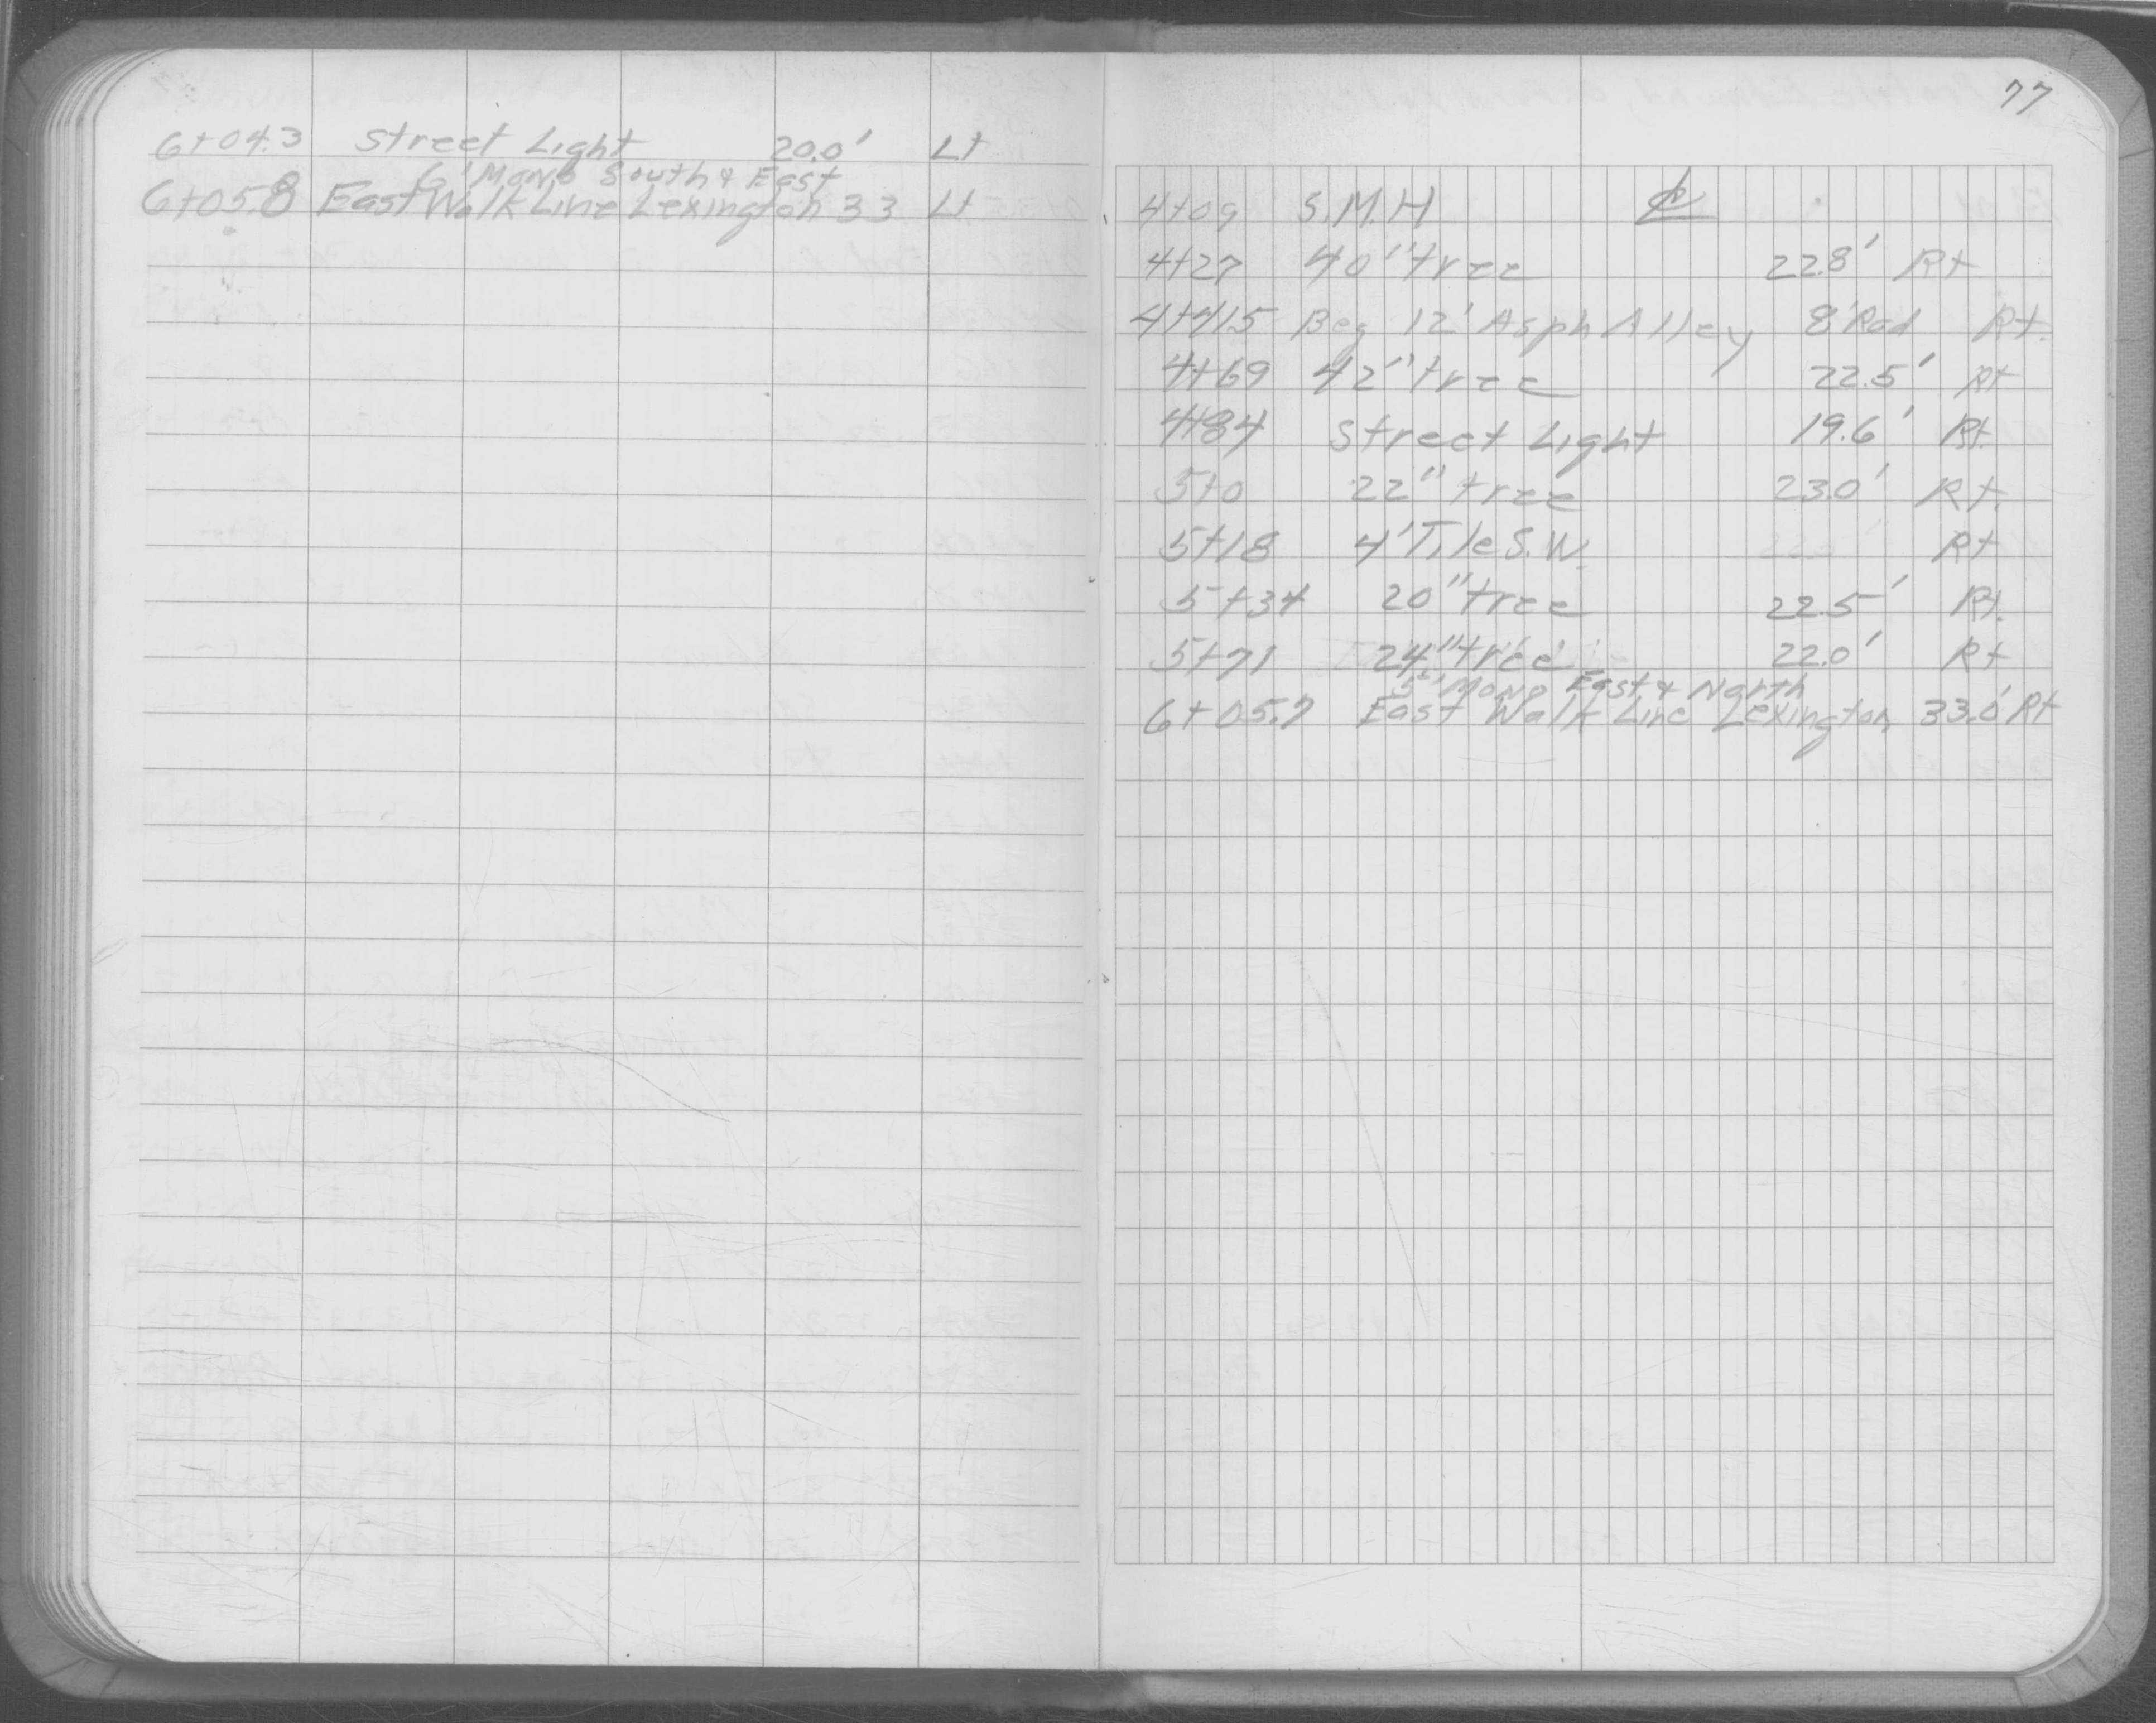 6+04.3 Street Light 20.0' Lt
6' Mono South & East
6+05.8 East Walk Line Lexington 33 Lt
77
4+09 S.M.H ℄
4+27 40" tree 22.8' Rt
4+41.5 Beg 12' Asph Alley 8' Rad Rt.
4+69 42" tree 22.5' Rt
4+84 Street Light 19.6' Rt.
5+0 22" tree 23.0' Rt.
5+18 4' Tile S.W. Rt
5+34 20" tree 22.5' Rt.
5+71 24" tree 22.0' Rt
5' Mono East & North
6+05.7 East Walk Line Lexington 33.0' Rt